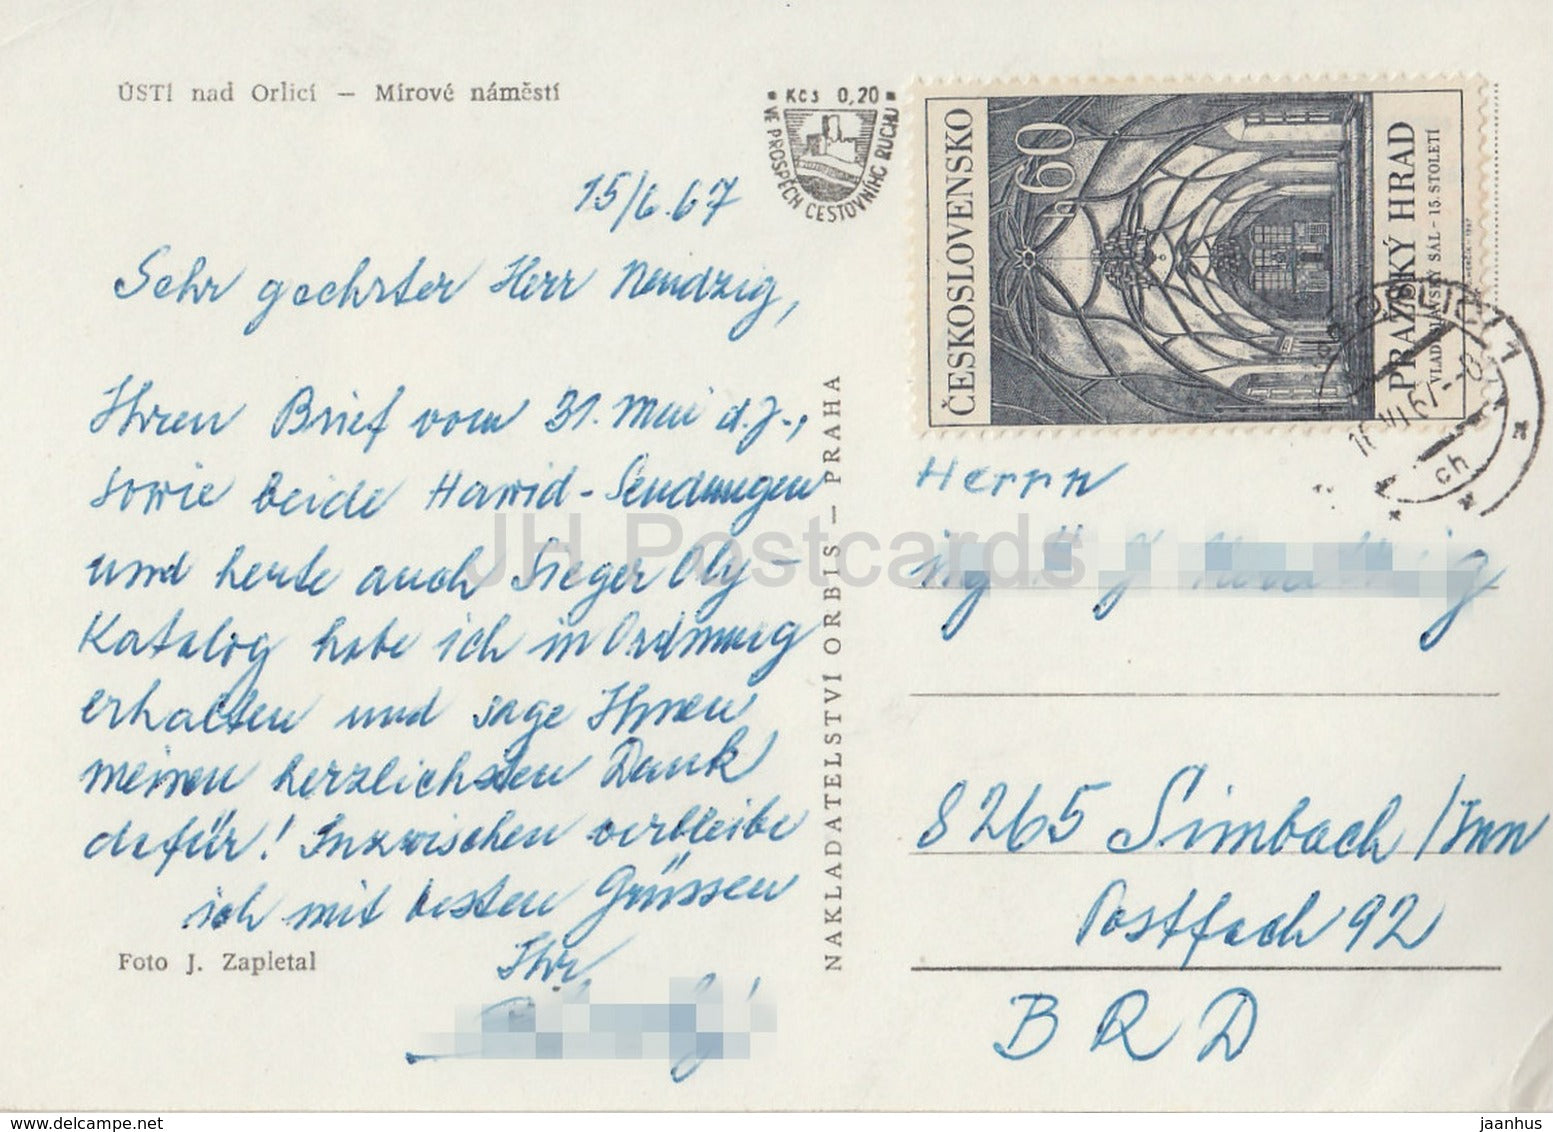 ÚSTÍ nad Orlicí — Mírové náměstí
Kčs 0,20
VE PROSPĚCH CESTOVNÍHO RUCHU
15/6.67
Sehr geehrter Herr Neudzig,
Ihren Brief vom 31. Mai d.J.,
sowie beide Hawid-Sendungen
und heute auch Sieger Oly-
Katalog habe ich in Ordnung
erhalten und sage Ihnen
meinen herzlichsten Dank
dafür! Inzwischen verbleibe
ich mit besten Grüssen
Ihr
Foto J. Zapletal
NAKLADATELSTVÍ ORBIS — PRAHA
ČESKOSLOVENSKO
60 h
PRAŽSKÝ HRAD
VLADISLAVSKÝ SÁL - 15. STOLETÍ
ch
Herrn
8265 Simbach/Inn
Postfach 92
BRD
JH Postcards
delcampe.net
jaanhus